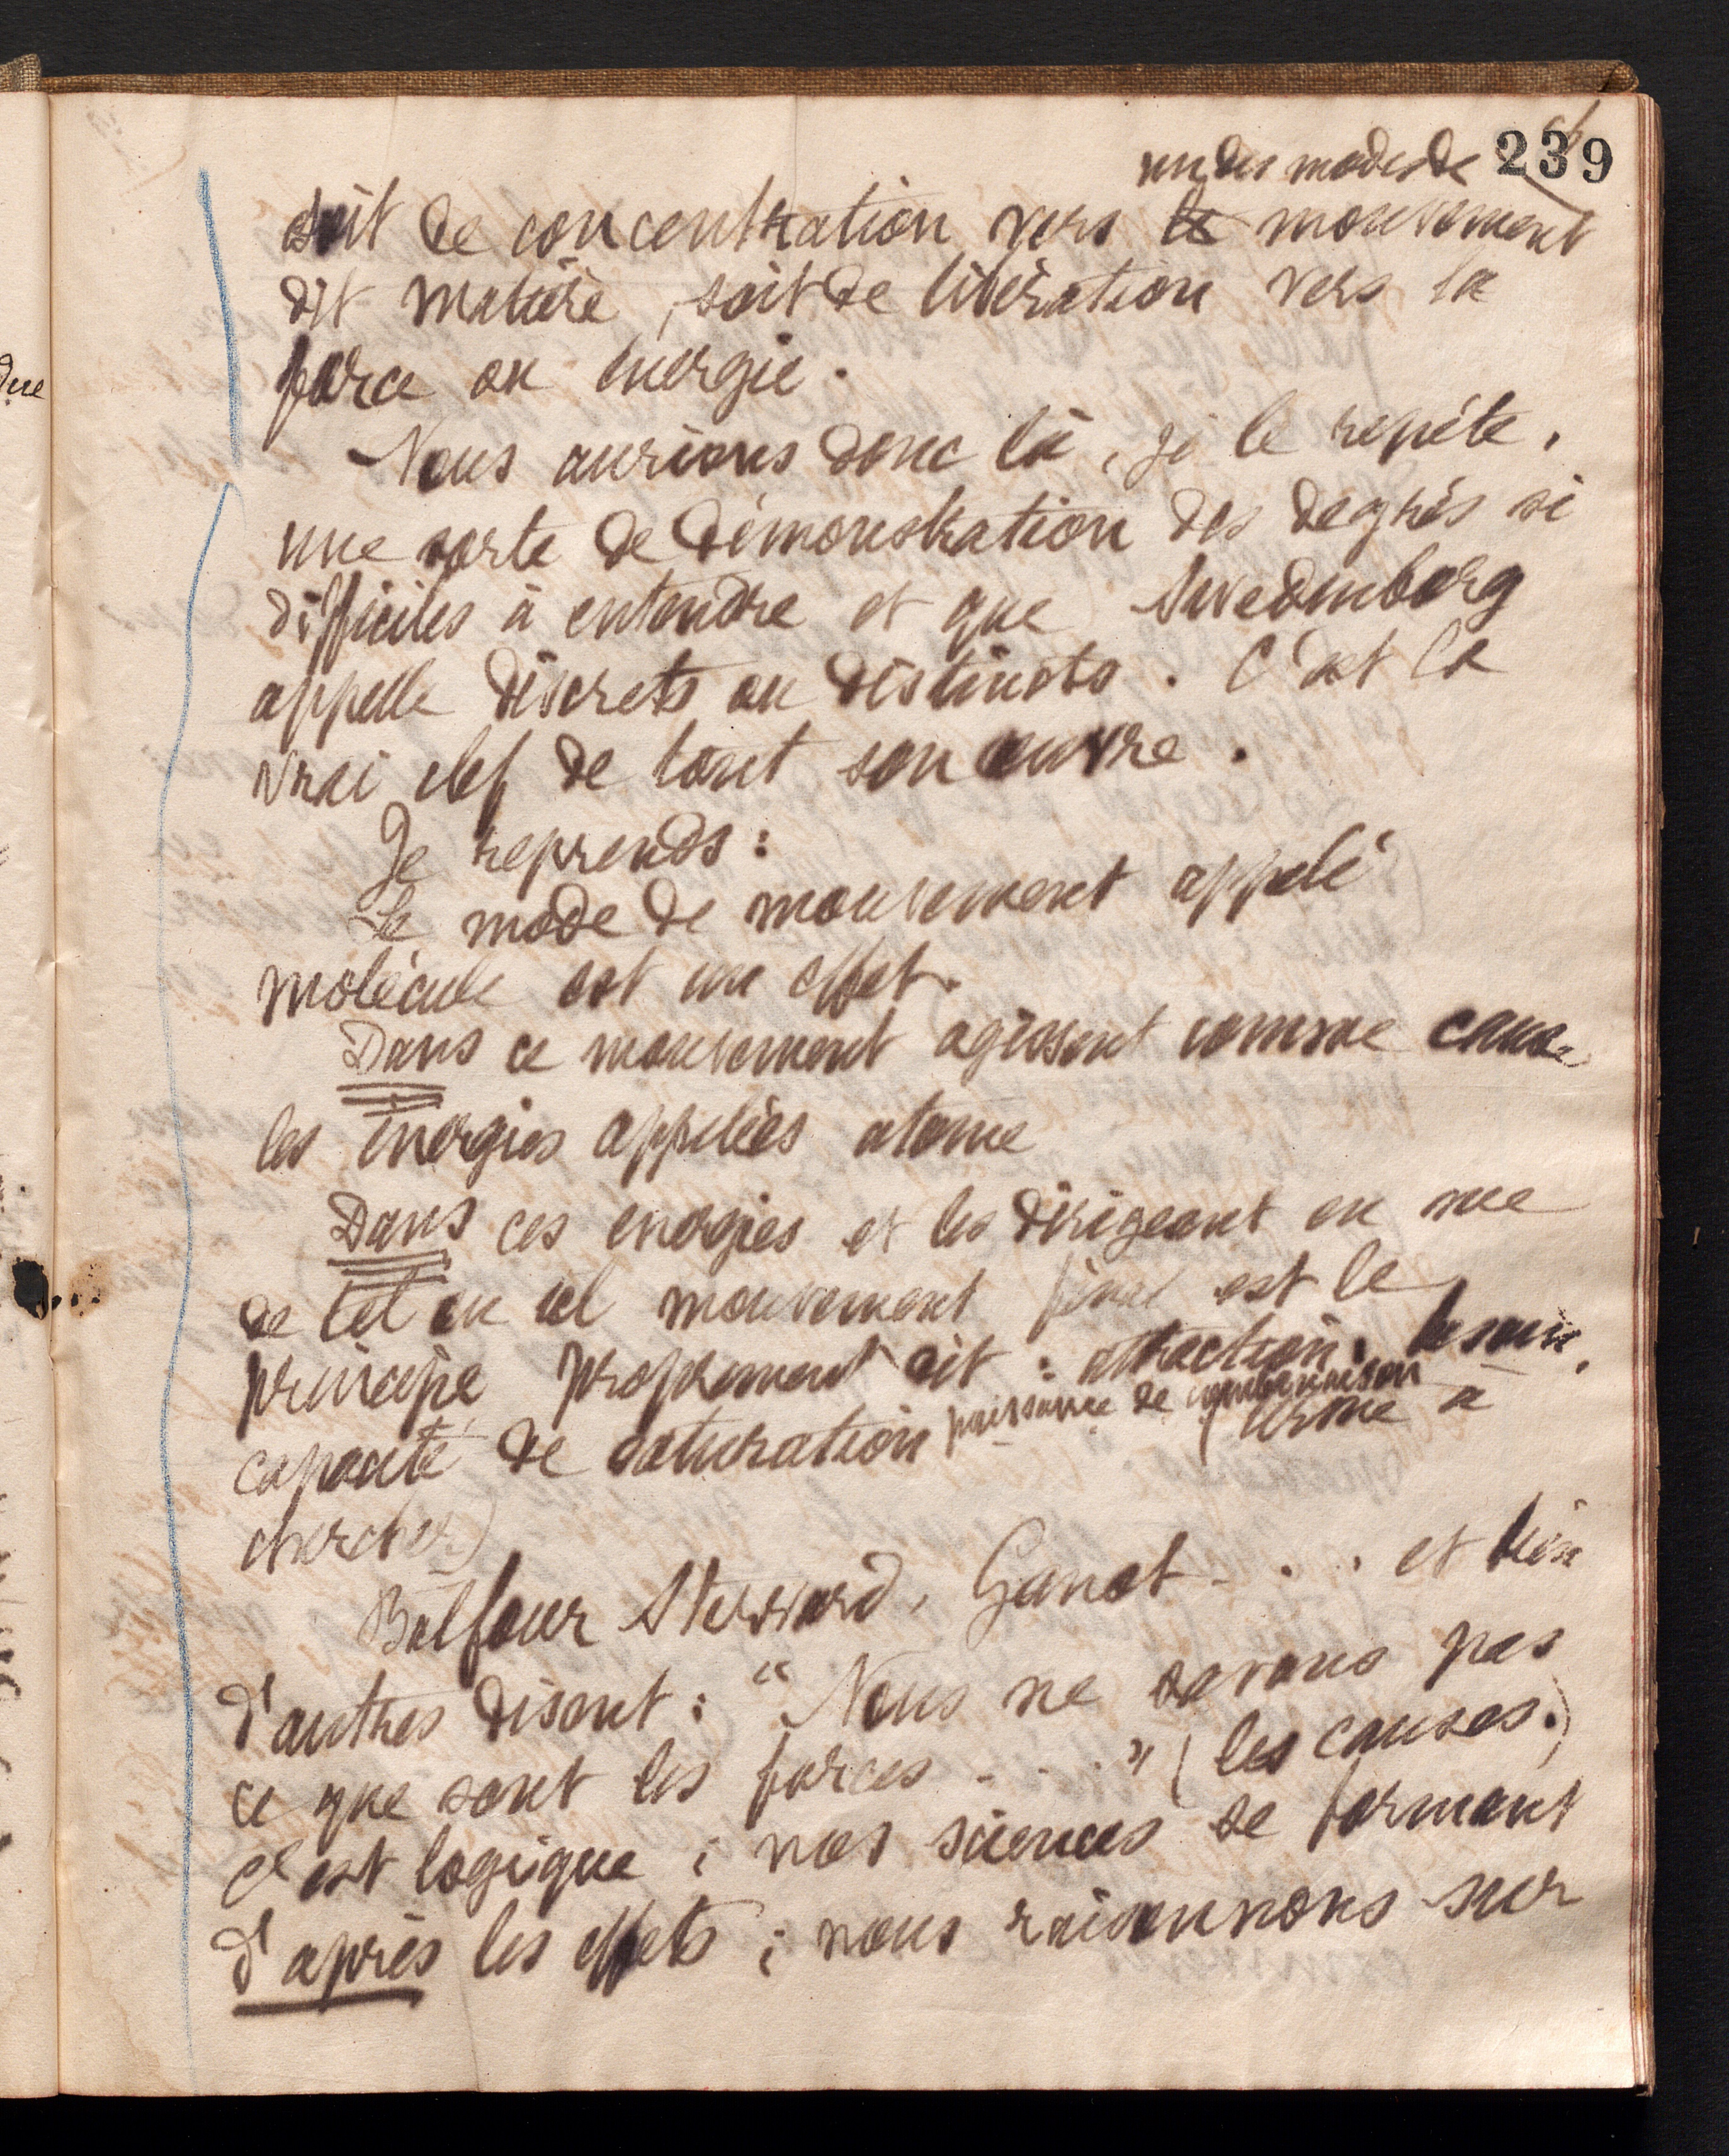 239
un des modes de
soit de concentration vers le mouvement
dit matière, soit de libération vers la
force ou énergie.
Nous aurions donc là, je le repète,
une sorte de démonstration des degrés si
difficiles à entendre et que Swedenborg
appelle discrets ou distincts. C'est la
vrai clef de tout son œuvre.
Je reprends :
Le mode de mouvement appelé
molécule est un effet.
Dans ce mouvement agissent comme cause
les énergies appelées atome
Dans ces energies et les dirigeant en vue
de tel ou tel mouvement final est le
principe proprement dit : attraction, besoin,
capacité de saturation puissance de combinaison (terme à
chercher)
Balfour Stewward, Ganot . . . et bien
d'autres disent : "Nous ne savons pas
ce que sont les forces . . . " (les causes.)
C'est logique ; nos sciences se formant
d'après les effets ; nous raisonnons sur
due